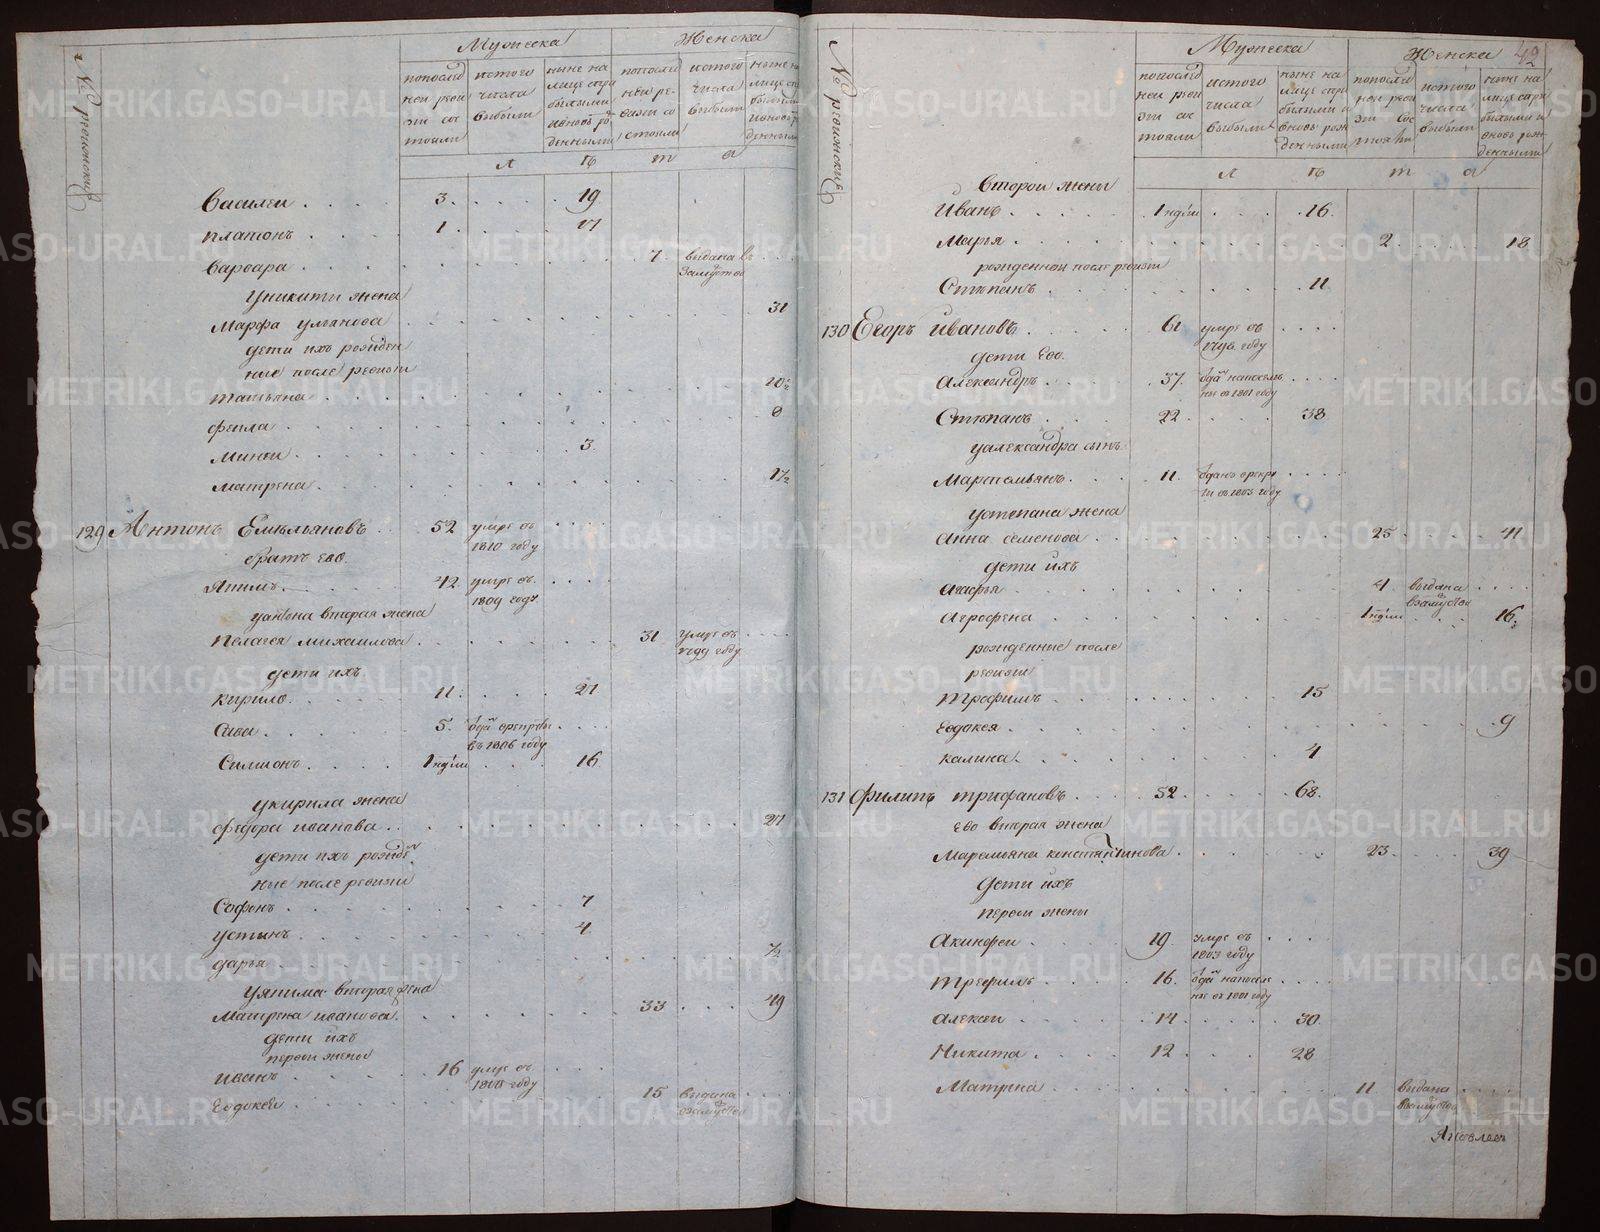 № ревижскиѣ
Мужеска
Женска
попослед
ней реви
зіи со
тояли
истого
числа
выбыли
ныне на
лице при
былыми
ивновь ро
денными
попослед
ней ре-
визіи со
стояли
истого
числа
выбыли
ныне на
л ѣ т а
Василеи 3. 19
Платонъ 1. 17
Варвара 7 выдана въ
замуство
У Никити жена
Марфа Ульянова 31
дети ихъ рожден
ные после ревизіи
Татьяна 10½
Феила 8
Минеи 3
Матрена 1½
129 Антонъ Емѣльяновъ 52 умре въ
1810 году
братъ ево
Якимъ 42 умре въ
1809 году
у Антона вторая жена
Пелагея Михаилова 31 умре въ
1799 году
дети ихъ
Кирило 11. 27
Сава 5. въ 1806 году
Симионъ 1 нд͂ли 16
у Кирила жена
Федора Иванова 27
дети ихъ рожде
ные после ревизіи
Софонъ 7
Устинъ 4
Дарья ½
у Якима вторая жена
Матрена Иванова 33 49
дети ихъ
первои жены
Иванъ 16 умре въ
году
Евдокея 15 выдана
взамуство
42
№ ревижскиѣ
Мужеска
Женска
попослед
ней реви
зіи со
тояли
истого
числа
выбыли
ныне на
лице при
былыми и
вновь рож
денными
попослед
ней реви
зіи сос
тояли
истого
числа
выбыли
ныне на
лице при
былыми и
вновь рож
денными
л ѣ т а
Второи жены
Иванъ 1 нд͂ли 16.
Марья 2 18
рожденнои после ревизіи
Стѣпанъ 11
130 Егоръ Ивановъ 61 умре въ
году
дети ево
Александръ 37. отданъ на поселе
ние въ 1801 году
Стѣпанъ 22 38
у Александра сынъ
Мартемьянъ 11. отданъ в рекру
ти въ 1803 году
у Степана жена
Анна Семенова 25 41
дети ихъ
Агафья 4 выдана
взамуство
Агрофена 1 нд͂ли 16
рожденные после
ревизіи
Трофимъ 15
Евдокея 9
Калина 4
131 Филипъ Трифановъ 52 68.
ево вторая жена
Маремьяна Константинова 23 39
дети ихъ
первои жены
Акинфеи 19 умре въ
1803 году
Трефилъ 16. отданъ на поселе
ние въ 1801 году
Алексеи 14 30
Никита 12 28
Матрена 11 выдана
взамуство
Яковлевъ
METRIKI.GASO-URAL.RU